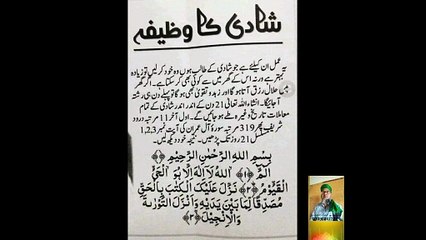 شادی کا وظیفہ
یہ عمل ان کیلئے ہے جو شادی کے طالب ہوں وہ خود کر لیں تو زیادہ
بہتر ہے ورنہ اس کے گھر میں سے کوئی بھی کر سکتا ہے۔ اگر گھر
میں حلال رزق آتا ہو گا اور زہد و تقویٰ بھی ہو گا تو پہلے دن ہی رشتہ
آ جائیگا۔ انشاء اللہ تعالیٰ 21 دن کے اندر اندر شادی کے تمام
معاملات تاریخ وغیرہ طے ہو جائیں گے۔ اول آخر 11 مرتبہ درود
شریف پھر 319 مرتبہ سورۃ آل عمران کی آیت نمبر 1,2,3
مسلسل 21 روز تک پڑھیں۔ نتیجہ خود دیکھ لیں۔
بِسْمِ اللهِ الرَّحْمٰنِ الرَّحِيْمِ
الٓمّٓ ﴿۱﴾ اَللهُ لَآ اِلٰهَ اِلَّا هُوَ الْحَيُّ
الْقَيُّوْمُ ﴿۲﴾ نَزَّلَ عَلَيْكَ الْكِتٰبَ بِالْحَقِّ
مُصَدِّقًا لِّمَا بَيْنَ يَدَيْهِ وَاَنْزَلَ التَّوْرٰىةَ
وَالْاِنْجِيْلَ ﴿۳﴾